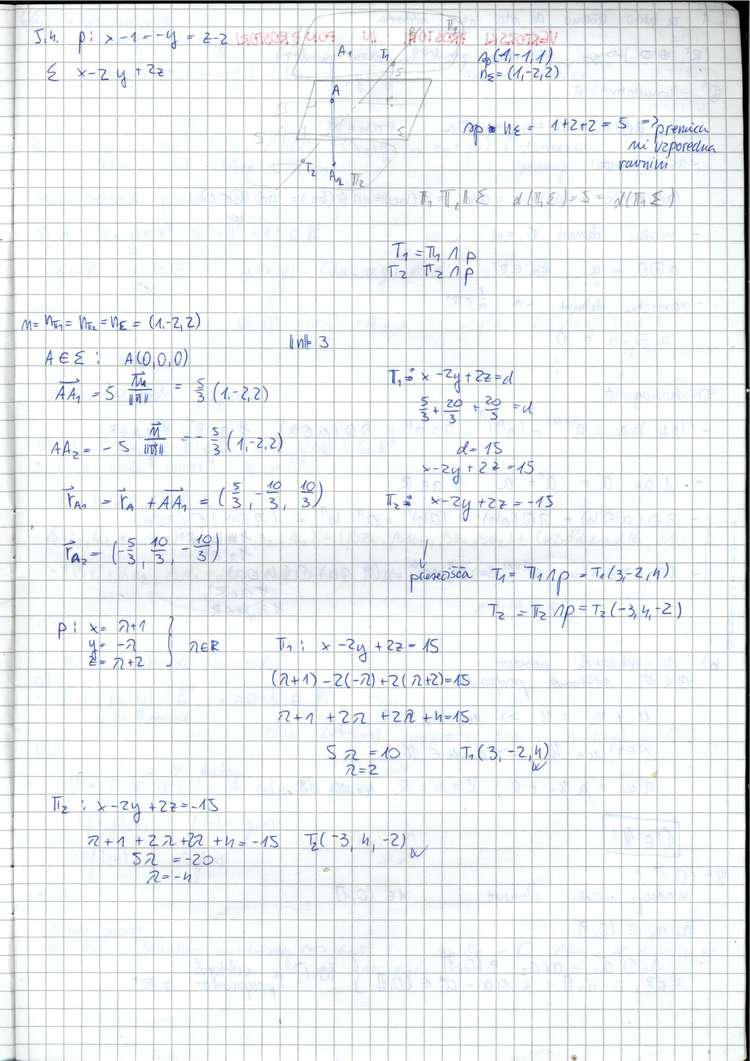 5.4. p: x-1 = -y = z-2
Σ x-2y+2z
A₁ T₁ Π₁
A
T₂ A₂ Π₂
sp(1,-1,1)
n_Σ = (1,-2,2)
sp · n_Σ = 1+2+2 = 5 => premica
ni vzporedna
ravnini
Π₁ Π₂ ∥ Σ d(Π₁Σ) = 5 = d(Π₁ Σ)
T₁ = Π₁ ∩ p
T₂ Π₂ ∩ p
n = n_Π₁ = n_Π₂ = n_Σ = (1,-2,2)
||n|| = 3
A ∈ Σ : A(0,0,0)
AA₁ = 5 n/||n|| = 5/3 (1,-2,2)
AA₂ = -5 n/||n|| = -5/3 (1,-2,2)
r_A₁ = r_A + AA₁ = (5/3, -10/3, 10/3)
r_A₂ = (-5/3, 10/3, -10/3)
Π₁ = x-2y+2z = d
5/3 + 20/3 + 20/3 = d
d = 15
x-2y+2z = 15
Π₂ = x-2y+2z = -15
↓
presečišča T₁ = Π₁ ∩ p = T₁(3,-2,4)
T₂ = Π₂ ∩ p = T₂(-3,4,-2)
p: x = λ+1
y = -λ
z = λ+2
} λ∈R
Π₁ : x-2y+2z = 15
(λ+1) -2(-λ) +2(λ+2) = 15
λ+1 +2λ +2λ +4 = 15
5λ = 10 T₁(3,-2,4)
λ = 2
Π₂ : x-2y+2z = -15
λ+1 +2λ +2λ +4 = -15 T₂(-3, 4, -2)
5λ = -20
λ = -4